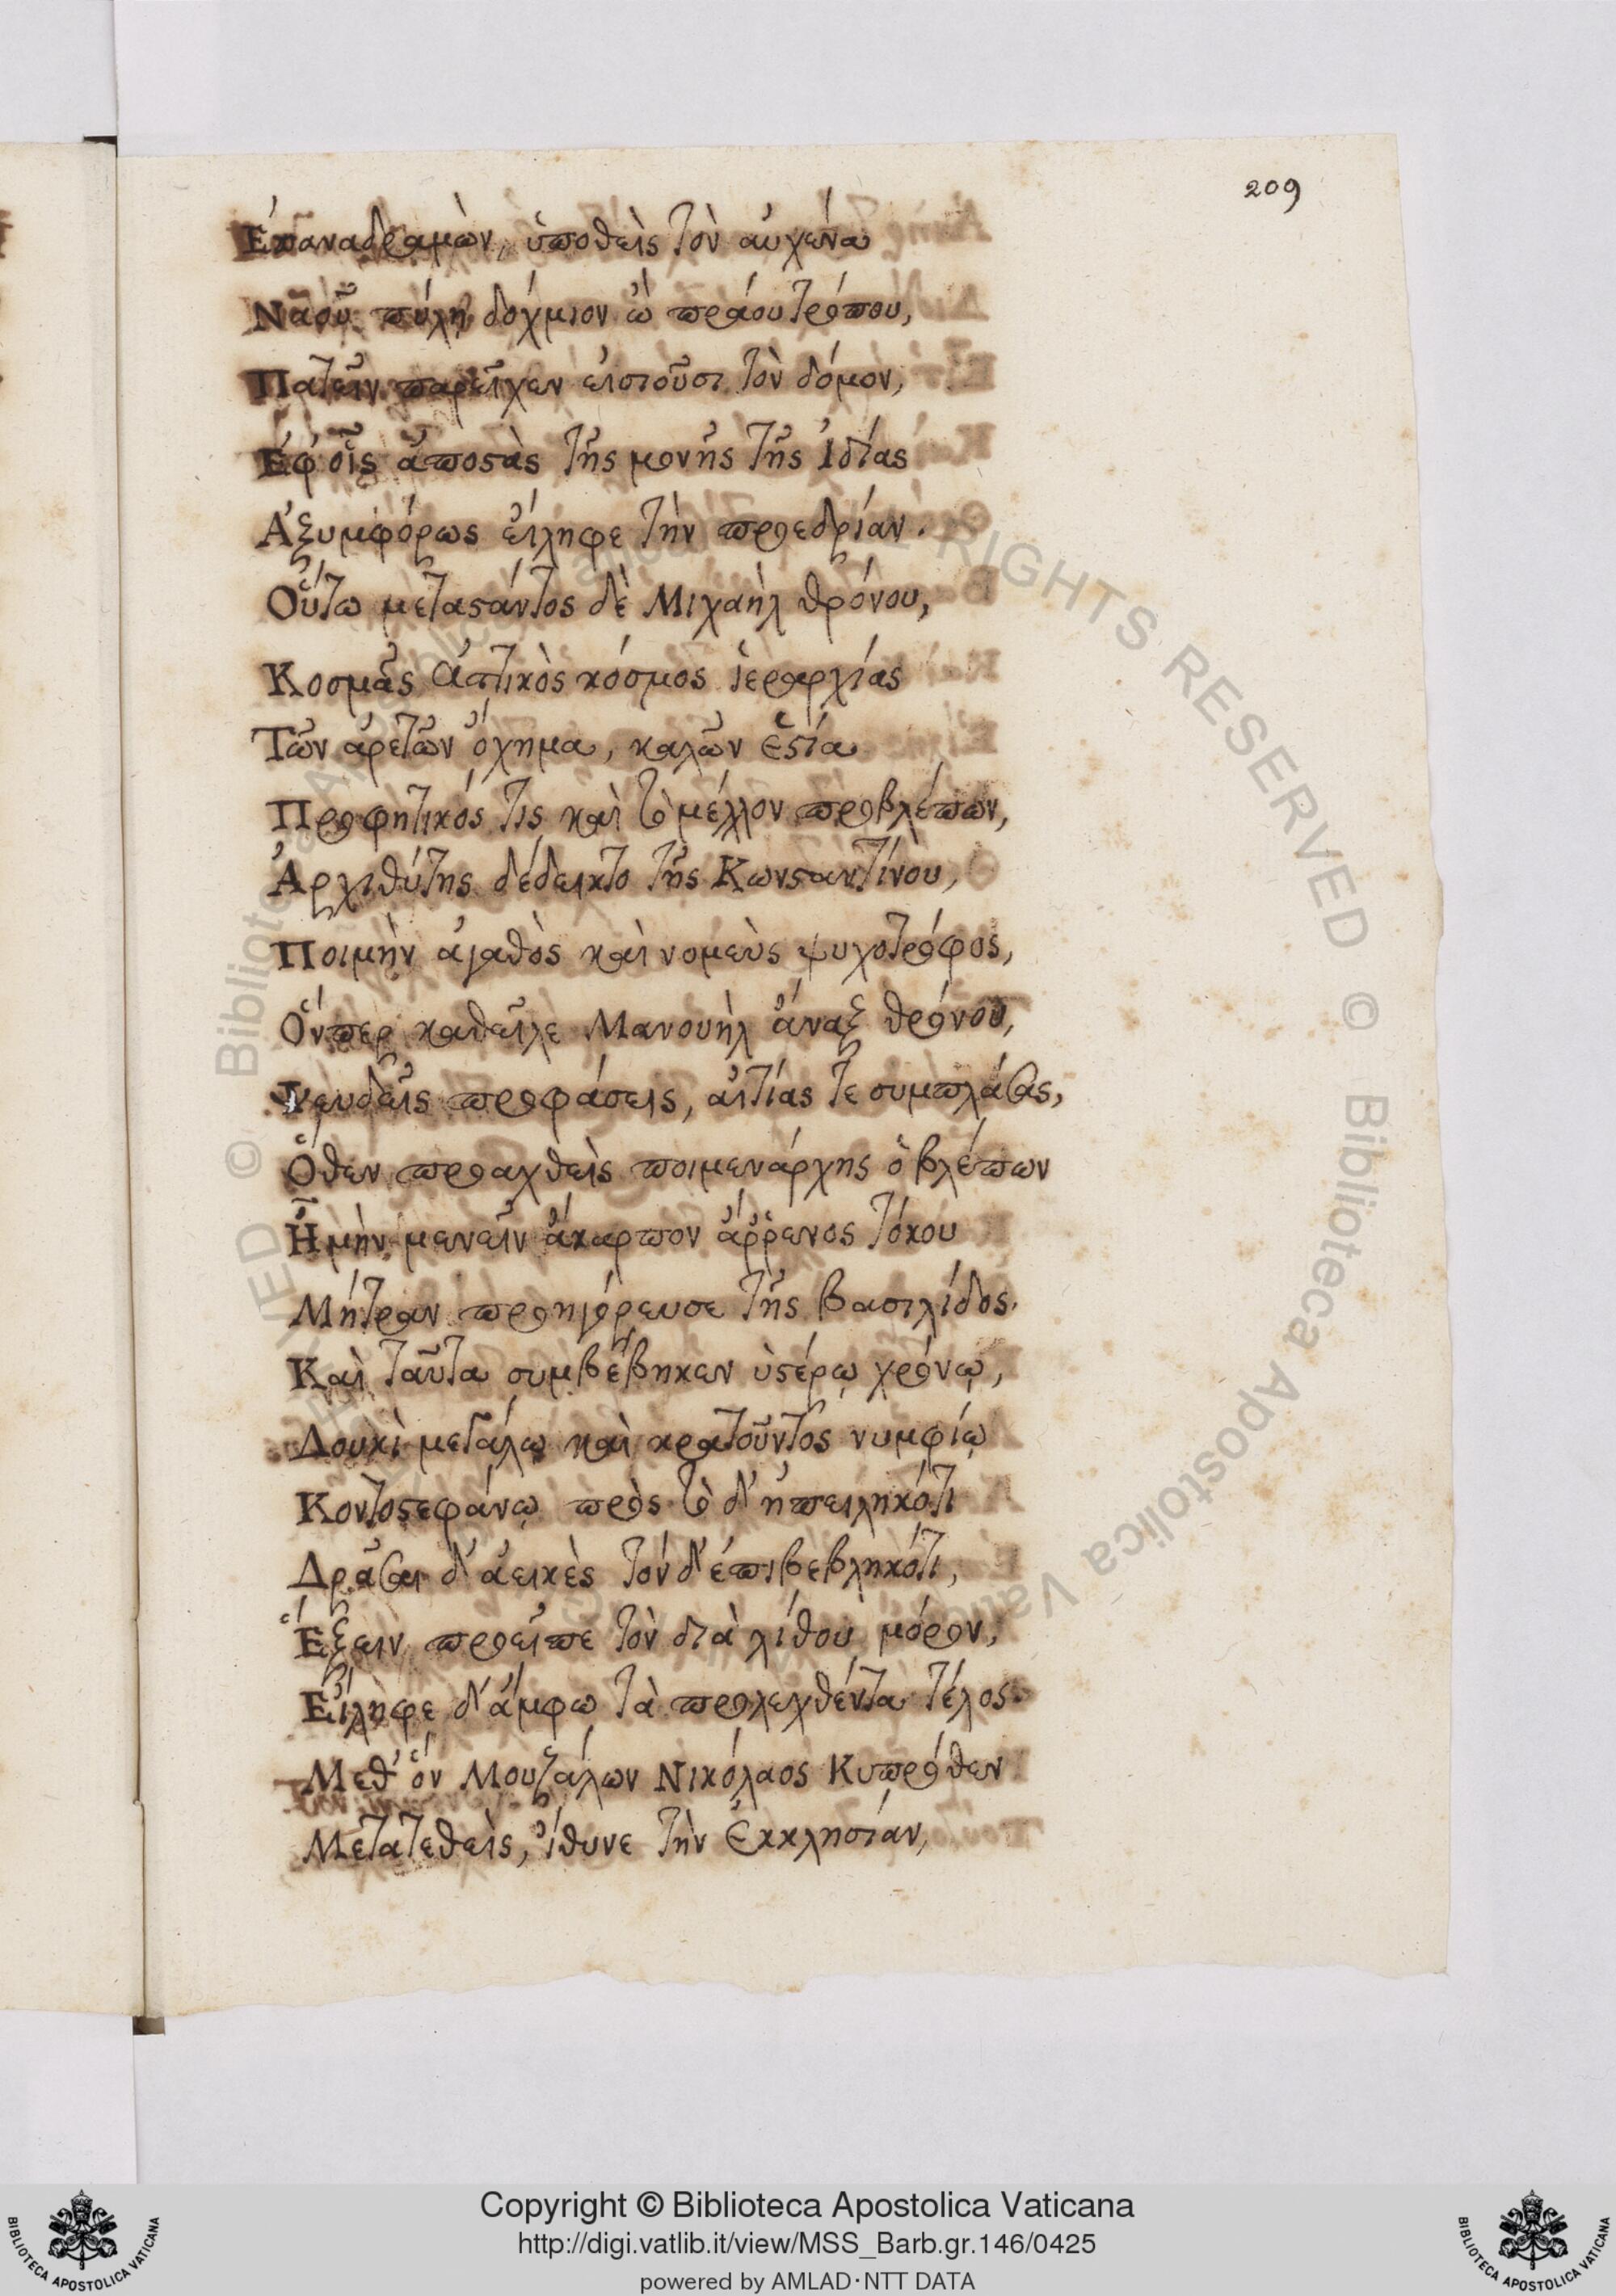 209
Ἐπαναδραμὼν, ὑποθεὶς τὸν αὐχένα
Ναοῦ πύλῃ δόχμιον ὢ πράου τρόπου,
Πατεῖν παρεῖχεν εἰσιοῦσι τὸν δόμον,
Ἐφ οἷς ἀποστὰς τῆς μονῆς τῆς Ἰδίας
Ἀξυμφόρως εἴληφε τὴν προεδρίαν.
Οὕτω μεταστάντος δὲ Μιχαὴλ θρόνου,
Κοσμᾶς Ἀττικὸς κόσμος ἱεραρχίας
Τῶν ἀρετῶν ὄχημα, καλῶν ἑστία
Προφητικός τις καὶ τὸ μέλλον προβλέπων,
Ἀρχιθύτης δέδεικτο τῆς Κωνσταντίνου,
Ποιμὴν ἀγαθὸς καὶ νομεὺς ψυχοτρόφος,
Ὅνπερ καθεῖλε Μανουὴλ ἄναξ θρόνου,
Ψευδεῖς προφάσεις, αἰτίας τε συμπλάσας,
Ὅθεν προαχθεὶς ποιμενάρχης ὁ βλέπων
Ἦ μὴν μενεῖν ἄκαρπον ἄῤῥενος τόκου
Μήτραν προηγόρευσε τῆς βασιλίδος.
Καὶ ταῦτα συμβέβηκεν ὑστέρῳ χρόνῳ,
Δουκὶ μεγάλῳ καὶ κρατοῦντος νυμφίῳ
Κοντοστεφάνῳ πρὸς τὸ δ' ἠπειληκότι
Δρᾶσαι δ' ἀεικὲς τόν δ' ἐπιβεβληκότι,
Ἕξειν προεῖπε τὸν διὰ λίθου μόρον,
Εἴληφε δ' ἄμφω τὰ προλεχθέντα τέλος.
Μεθ' ὃν Μουζάλων Νικόλαος Κυπρόθεν
Μετατεθεὶς, ἴθυνε τὴν Ἐκκλησίαν,
Copyright © Biblioteca Apostolica Vaticana
http://digi.vatlib.it/view/MSS_Barb.gr.146/0425
powered by AMLAD·NTT DATA